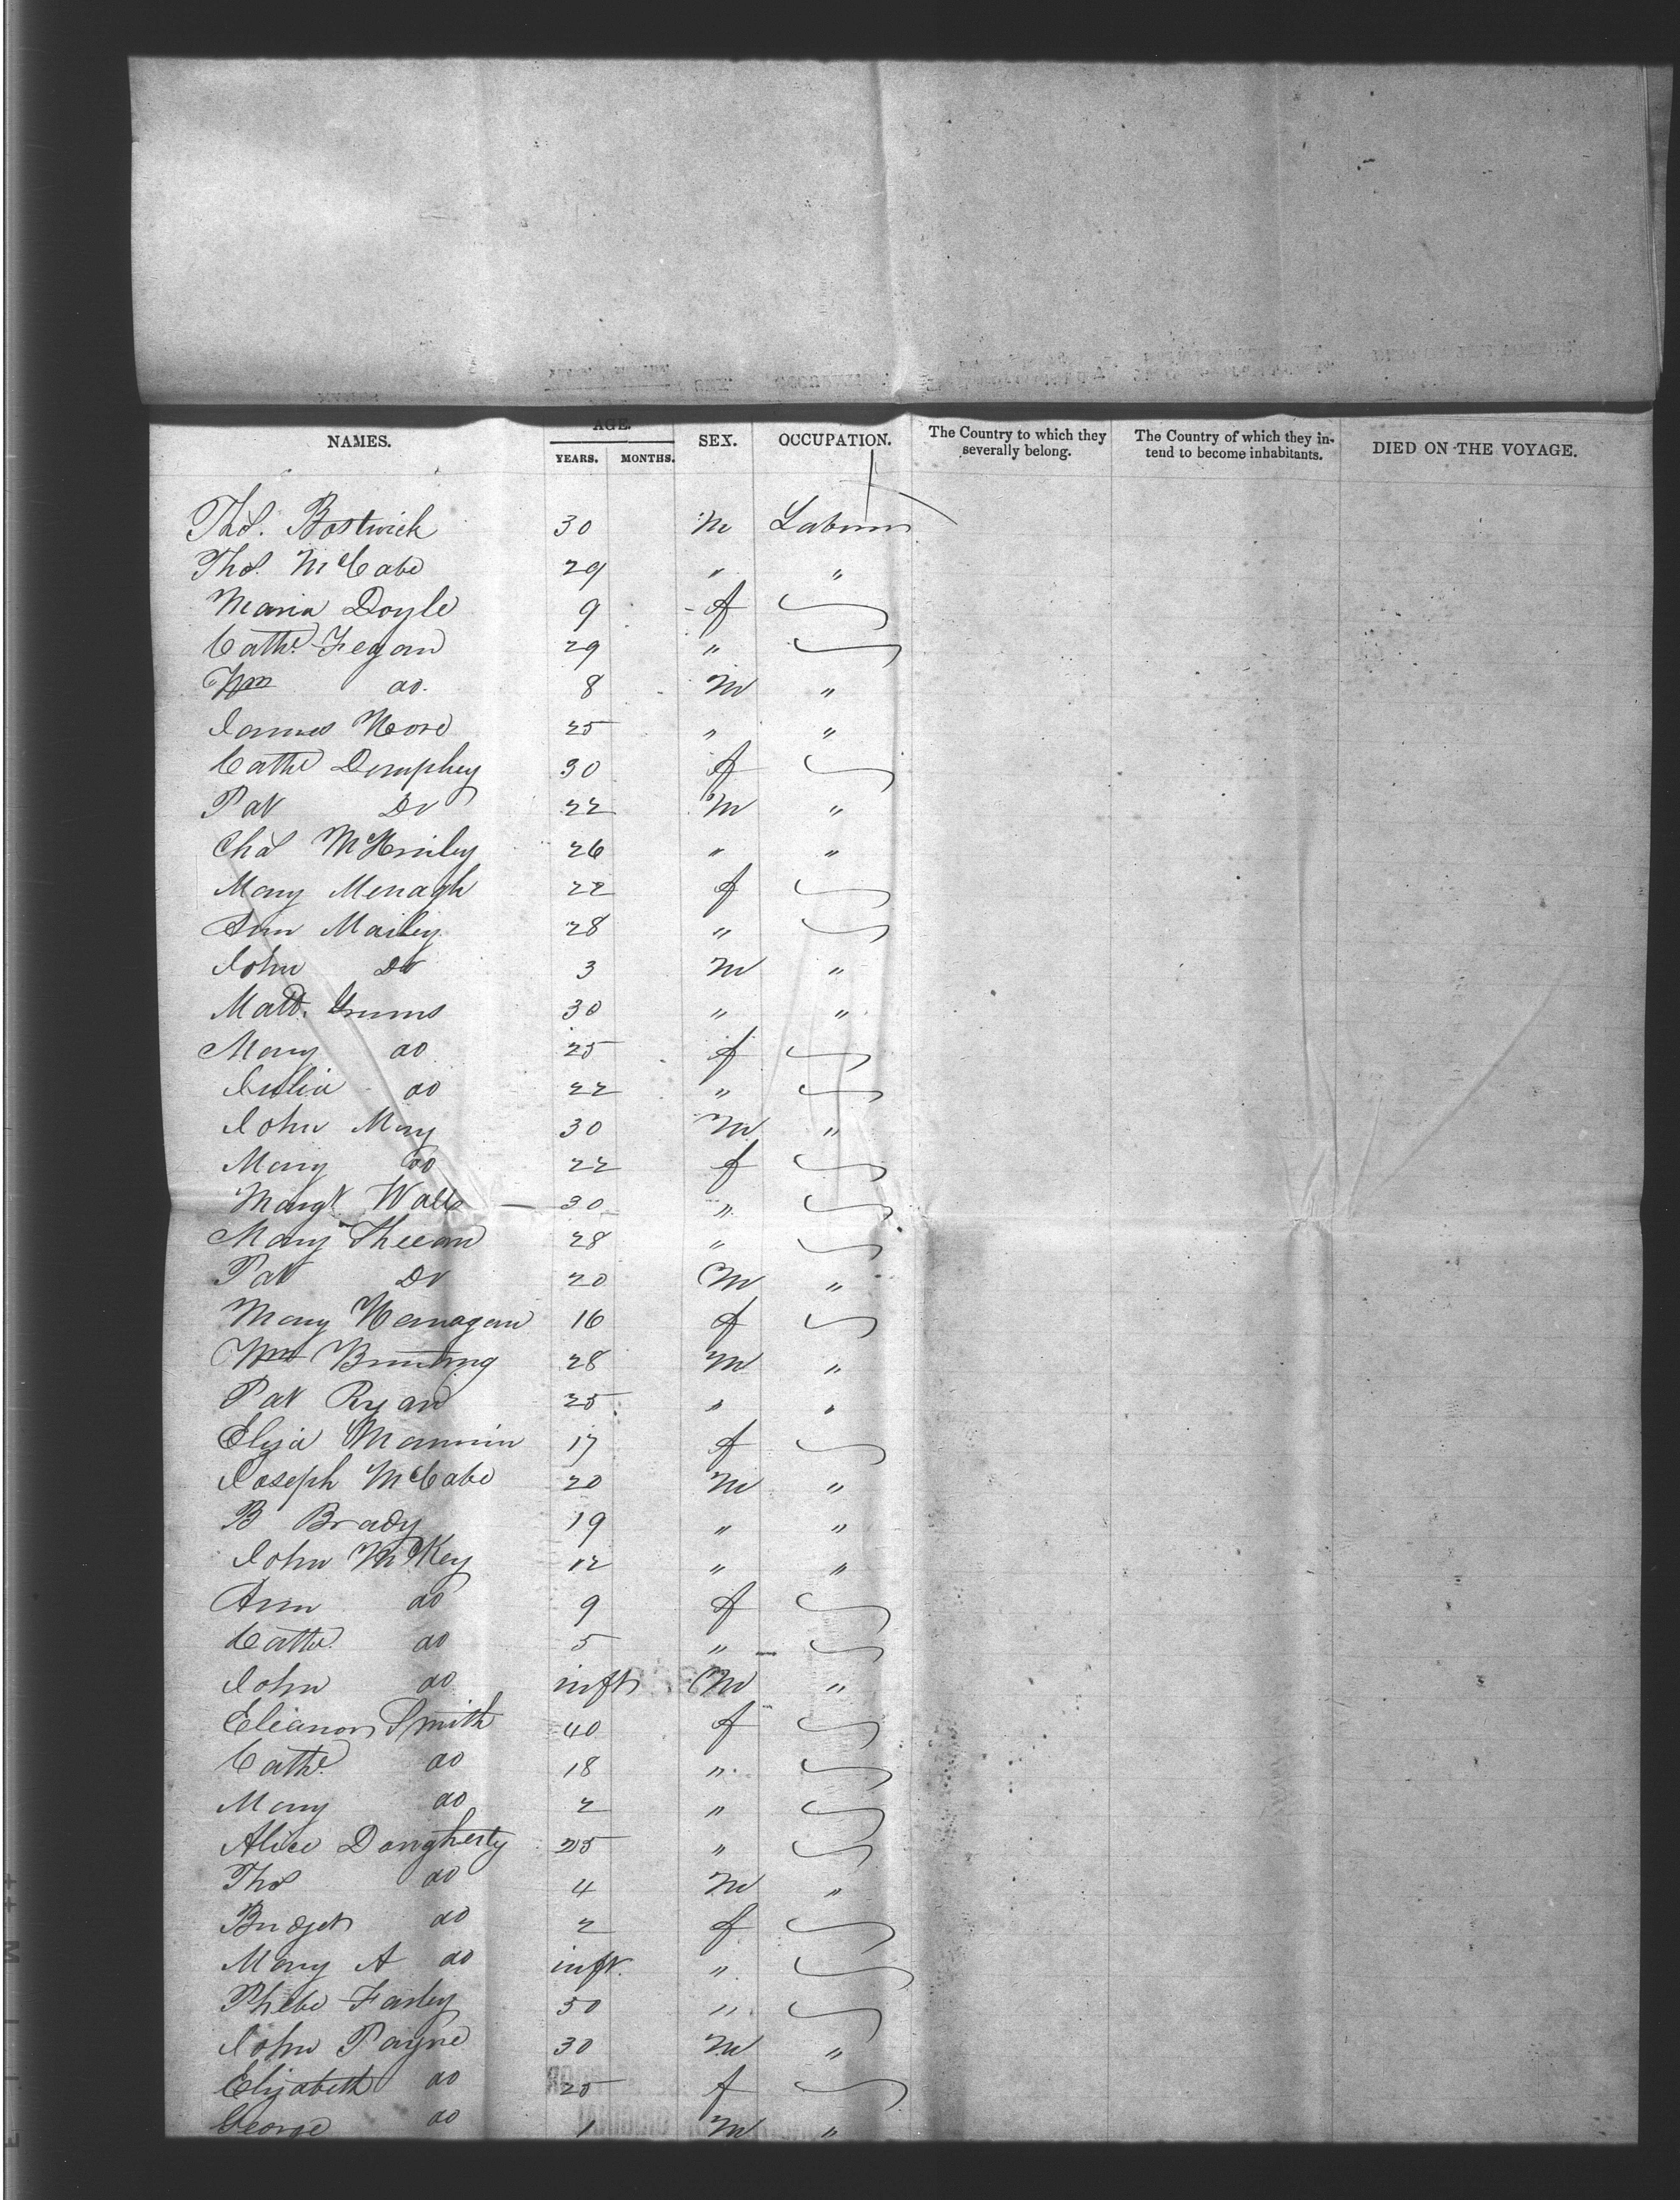 NAMES. AGE. YEARS. MONTHS. SEX. OCCUPATION. The Country to which they severally belong. The Country of which they intend to become inhabitants. DIED ON THE VOYAGE.
Thos. Bostwick 30 M Laborer
Thos. McCabe 29 " "
Maria Doyle 9 f
Cathe. Fegan 29 "
Wm do. 8 M "
James Hore 25 " "
Cathe Demphey 30 f
Pat Do 22 M "
Chas McKinley 26 " "
Mary Menagh 22 f
Ann Marley 28 "
John Do 3 M "
Matt. 30 " "
Mary do 25 f
Julia do 22 "
John May 30 M "
Mary do 22 f
Margt. Walls 30 "
Mary 28 "
Pat Do 20 M "
Mary Hanagan 16 f
Wm Bunting 28 M "
Pat Ryan 25 " "
Eliza Mannin 17 f
Joseph McCabe 20 M "
B Brady 19 " "
John McKey 12 " "
Ann do 9 f
Cathe. do 5 "
John do inft M "
Eleanor Smith 40 f
Cathe. do 18 "
Mary do 2 "
Alice Dougherty 25 "
Thos do 4 M "
Bridget do 2 f
Mary A do inft. "
Phebe Farley 50 "
John Payne 30 M "
Elizabeth do 25 f
George do 1 M "